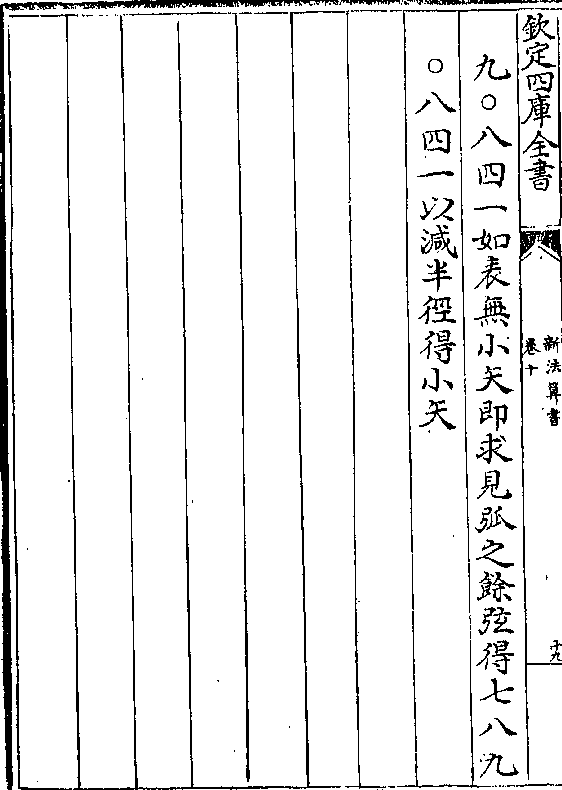 欽定四庫全書
新法算書
卷十
十九
九〇八四一如表無小矢即求見弧之餘弦得七八九
〇八四一以減半徑得小矢